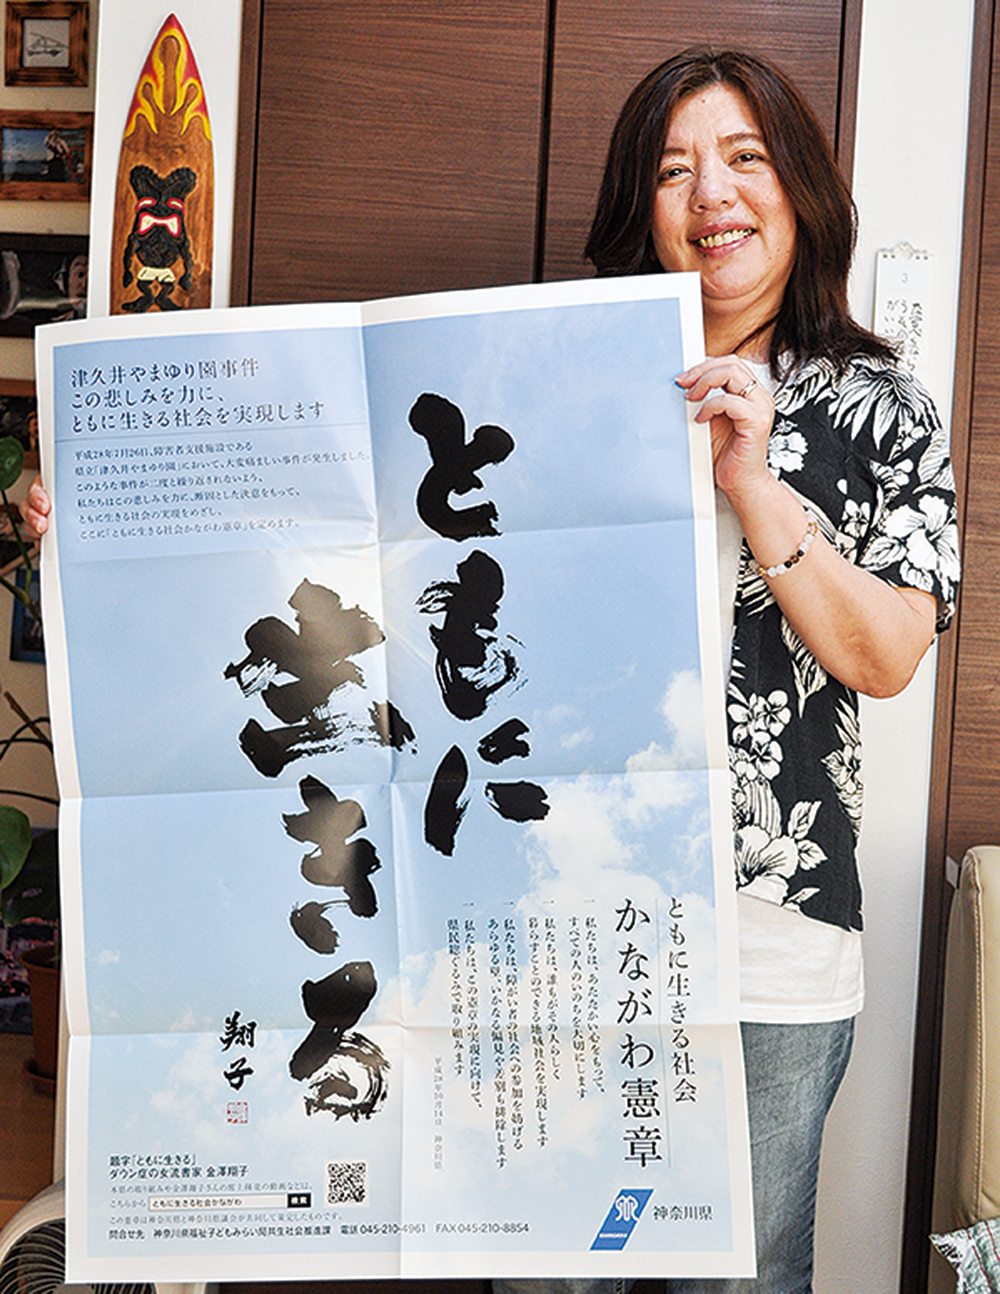 津久井やまゆり園事件
この悲しみを力に、
ともに生きる社会を実現します
平成28年7月26日、障害者支援施設である
県立「津久井やまゆり園」において、大変痛ましい事件が発生しました。
このような事件が二度と繰り返されないよう、
私たちはこの悲しみを力に、断固とした決意をもって、
ともに生きる社会の実現をめざし、
ここに「ともに生きる社会かながわ憲章」を定めます。
ともに
生きる
翔子
ともに生きる社会
かながわ憲章
一 私たちは、あたたかい心をもって、
すべての人のいのちを大切にします
一 私たちは、誰もがその人らしく
暮らすことのできる地域社会を実現します
一 私たちは、障がい者の社会への参加を妨げる
あらゆる壁、いかなる偏見や差別も排除します
一 私たちは、この憲章の実現に向けて、
県民総ぐるみで取り組みます
平成28年10月14日 神奈川県
題字「ともに生きる」
ダウン症の女流書家 金澤翔子
本県の取り組みや金澤翔子さんの席上揮毫の動画などは、
こちらから ともに生きる社会かながわ 検索
この憲章は神奈川県と神奈川県議会が共同して策定したものです。
問合せ先 神奈川県福祉子どもみらい局共生社会推進課 電話 045-210-4961 FAX 045-210-8854
神奈川県
3